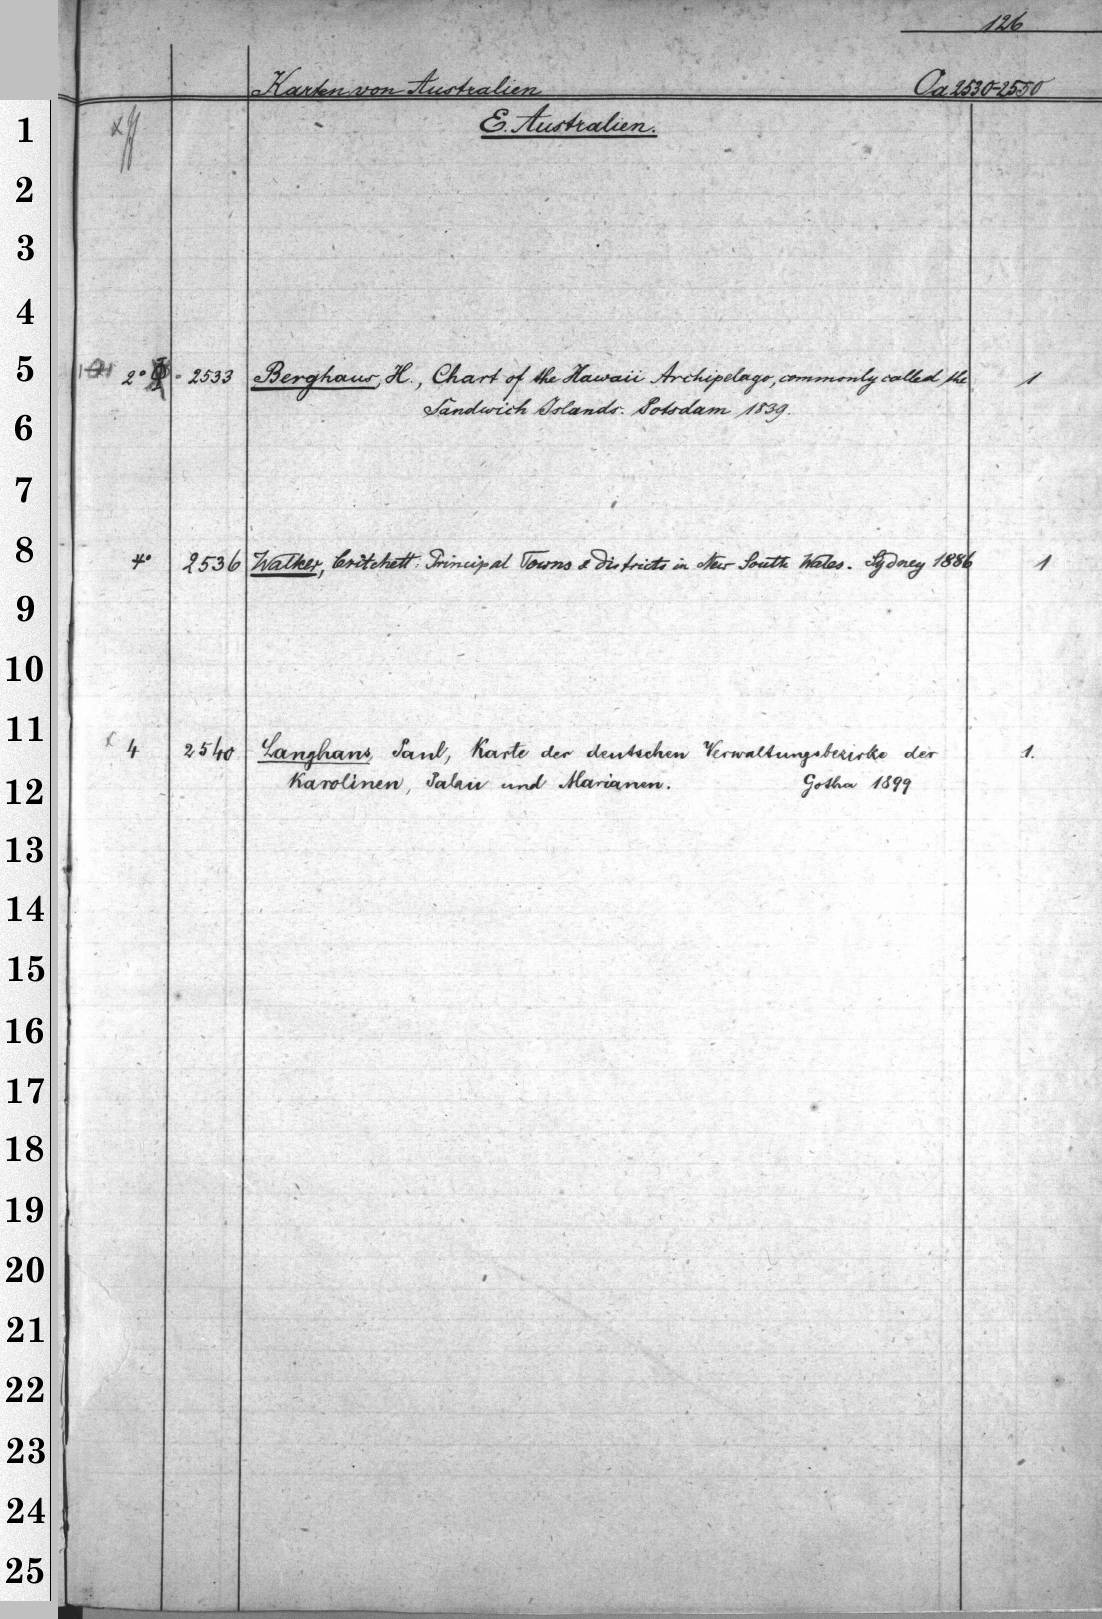 126
Karten von Australien Oa 2530-2550
1 E. Australien.
2
3
4
5 2° 2533 Berghaus, H., Chart of the Hawaii Archipelago, commonly called the 1
6 Sandwich Islands. Potsdam 1839.
7
8 4° 2536 Walker, Critchett: Principal Towns & Districts in New South Wales. Sydney 1886 1
9
10
11 4 2540 Langhans, Paul, Karte der deutschen Verwaltungsbezirke der 1.
12 Karolinen, Palau und Marianen. Gotha 1899
13
14
15
16
17
18
19
20
21
22
23
24
25